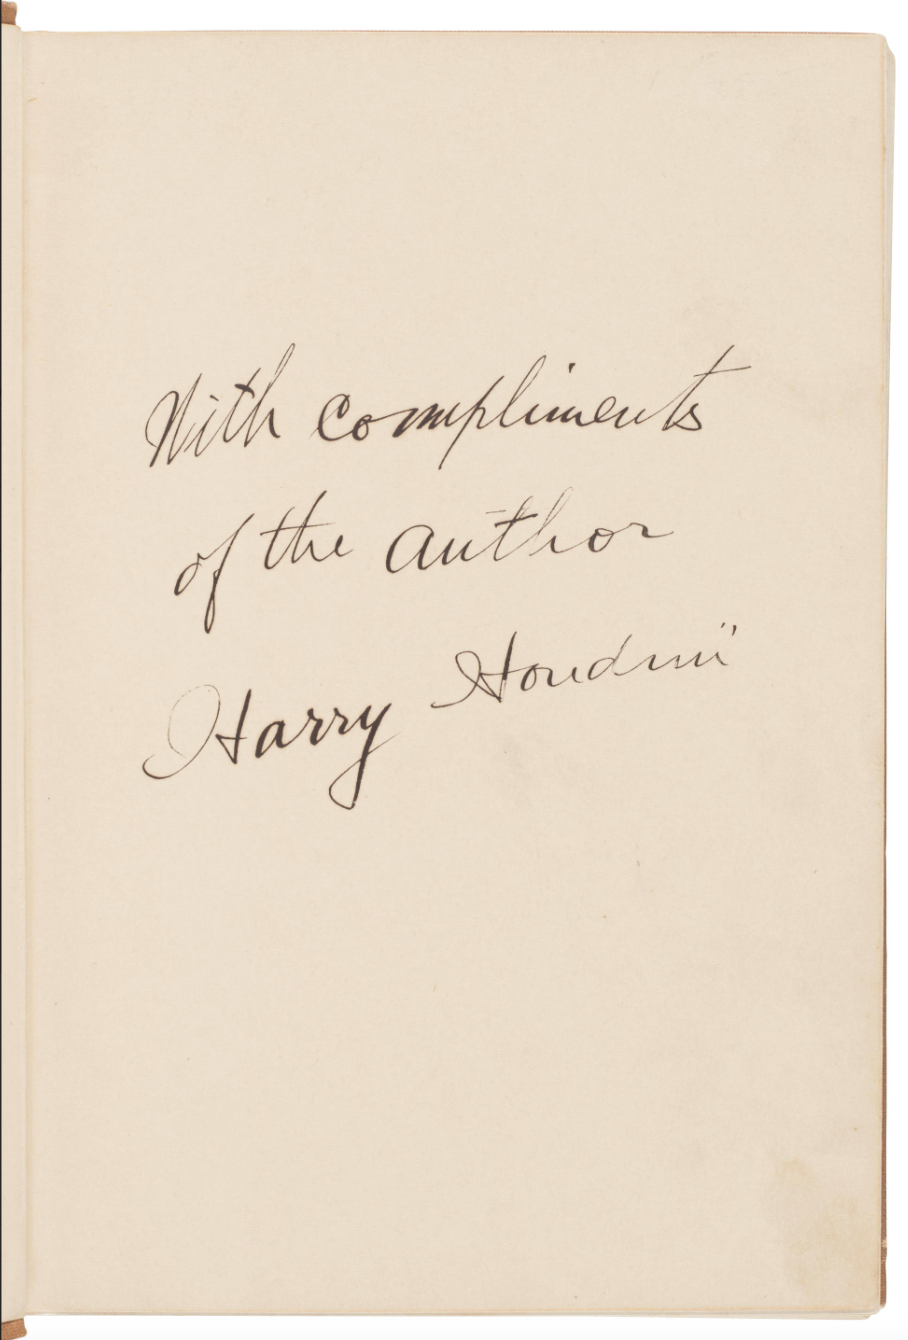 With compliments
of the author
Harry Houdini